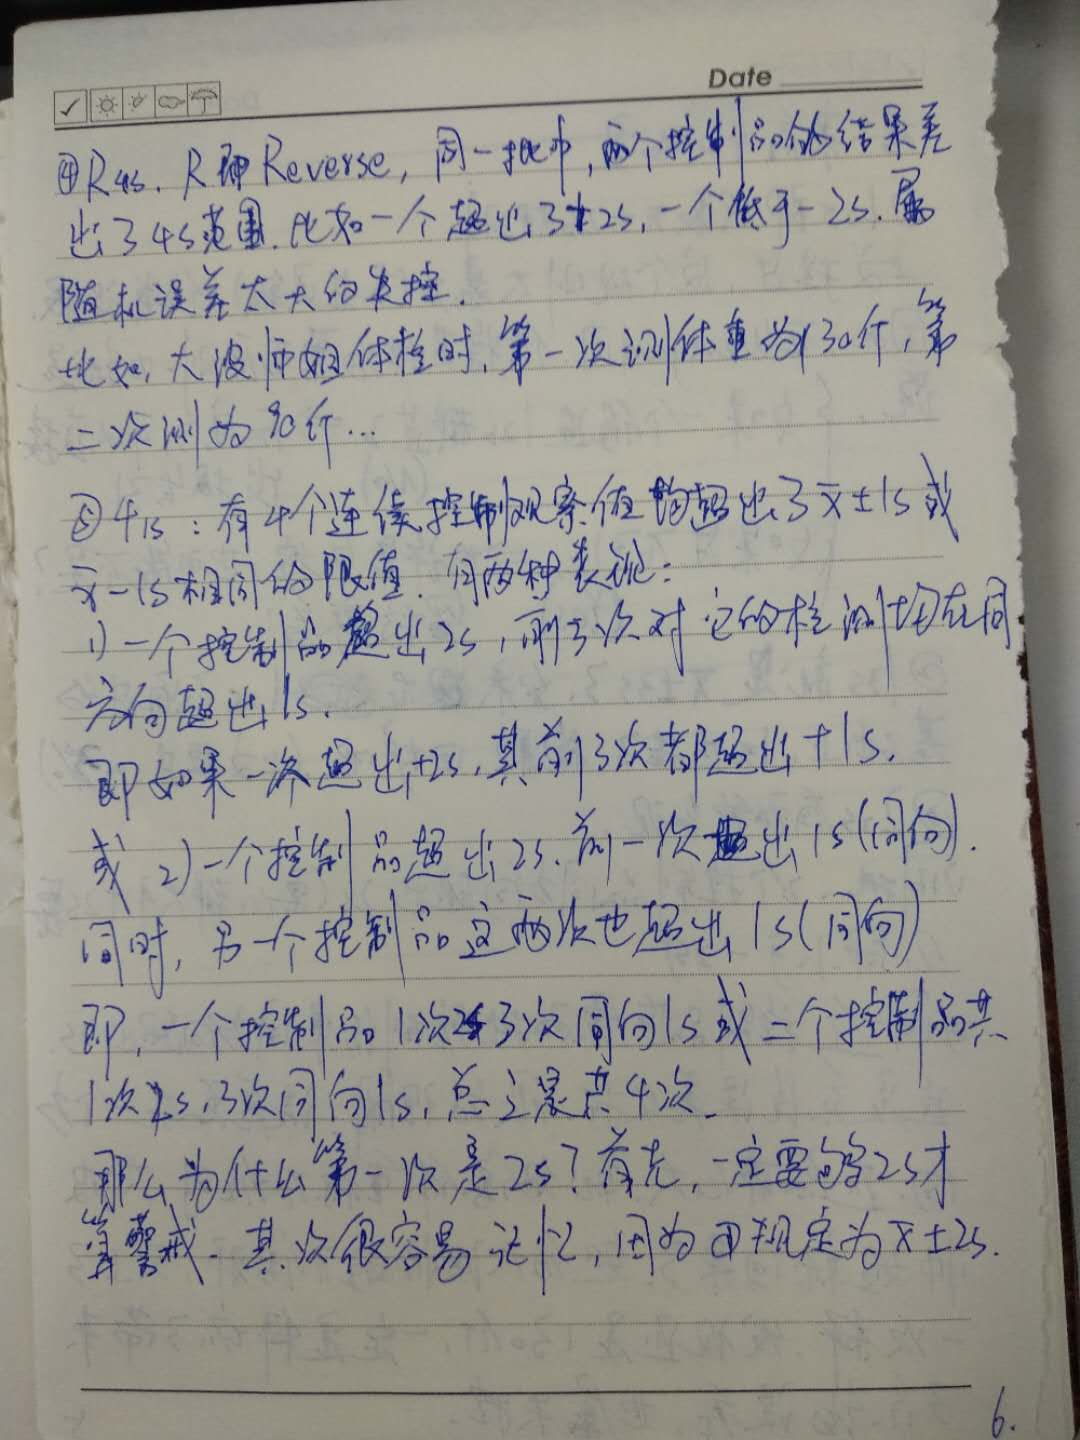 Date
④R4s. R即Reverse, 同一批中, 两个控制品的结果差
出了4s范围. 比如一个超出了+2s, 一个低于-2s. 属
随机误差太大的失控.
比如, 大波师姐体检时, 第一次测体重为130斤, 第
二次测为90斤...
⑤41s: 有4个连续控制观察值均超出了x̄±1s或
x̄-1s相同的限值. 有两种表现:
1) 一个控制品超出2s, 前3次对它的检测均在同
方向超出1s.
即如果一次超出+2s, 其前3次都超出+1s.
或 2) 一个控制品超出2s. 前一次超出1s(同向).
同时, 另一个控制品这两次也超出1s(同向)
即, 一个控制品1次2s3次同向1s或二个控制品共
1次2s, 3次同向1s, 总之是共4次.
那么为什么第一次是2s? 首先, 一定要够2s才
算警戒. 其次很容易记忆, 因为④规定为x̄±2s.
6.